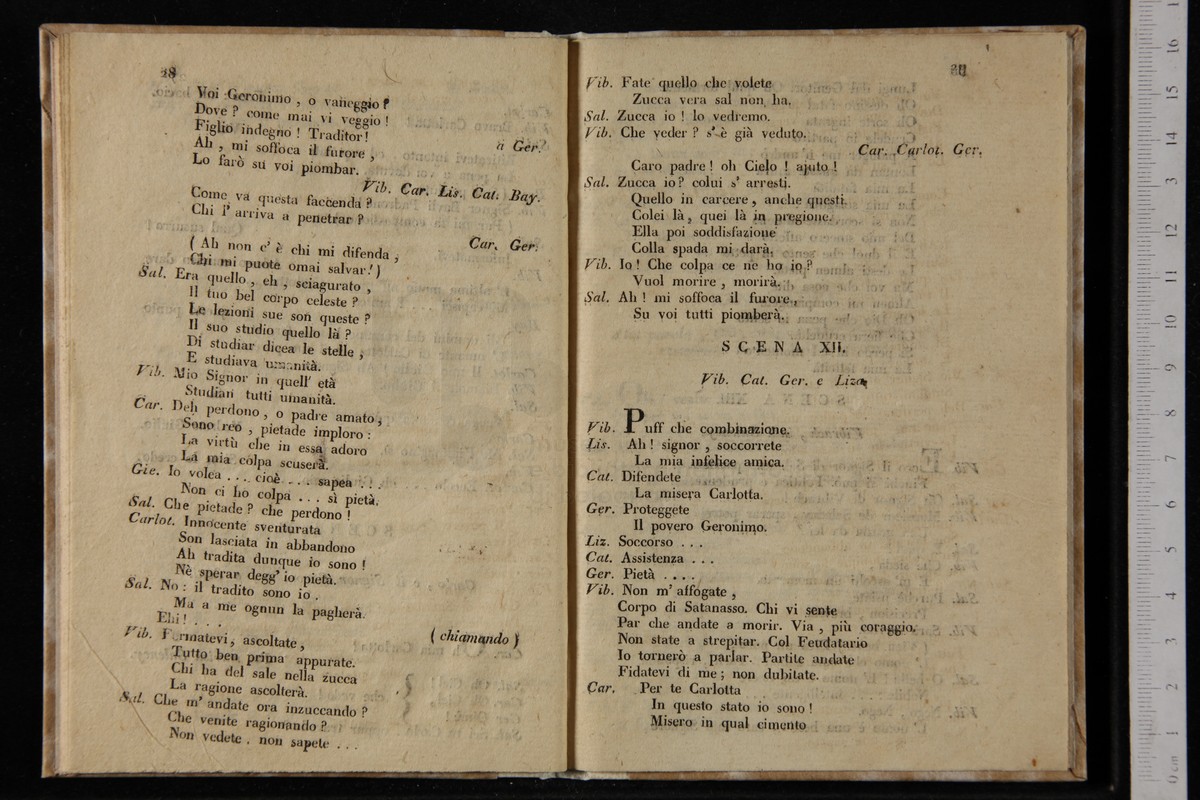 28
Voi Geronimo , o vaneggio ?
Dove ? come mai vi veggio !
Figlio indegno ! Traditor !
Ah , mi soffoca il furore , a Ger.
Lo farò su voi piombar.
Vib. Car. Lis. Cat. Bay.
Come va questa faccenda ?
Chi l' arriva a penetrar ?
Car. Ger.
( Ah non c' è chi mi difenda ,
Chi mi puote omai salvar ! )
Sal. Era quello , eh , sciagurato ,
Il tuo bel corpo celeste ?
Le lezioni sue son queste ?
Il suo studio quello là ?
Di studiar dicea le stelle ,
E studiava umanità.
Vib. Mio Signor in quell' età
Studian tutti umanità.
Car. Deh perdono , o padre amato ,
Sono reo , pietade imploro :
La virtù che in essa adoro
La mia colpa scuserà.
Gie. Io volea . . . cioè . . . sapea . . .
Non ci ho colpa . . . sì pietà.
Sal. Che pietade ? che perdono !
Carlot. Innocente sventurata
Son lasciata in abbandono
Ah tradita dunque io sono !
Nè sperar degg' io pietà.
Sal. No : il tradito sono io .
Ma a me ognun la pagherà.
Ehi ! . . . ( chiamando )
Vib. Fermatevi , ascoltate ,
Tutto ben prima appurate.
Chi ha del sale nella zucca
La ragione ascolterà.
Sal. Che m' andate ora inzuccando ?
Che venite ragionando ?
Non vedete , non sapete . . .
Vib. Fate quello che volete
Zucca vera sal non ha.
Sal. Zucca io ! lo vedremo.
Vib. Che veder ? s' è già veduto.
Car. Carlot. Ger.
Caro padre ! oh Cielo ! ajuto !
Sal. Zucca io ? colui s' arresti.
Quello in carcere , anche questi.
Colei là , quei là in pregione.
Ella poi soddisfazione
Colla spada mi darà.
Vib. Io ! Che colpa ce ne ho io ?
Vuol morire , morirà.
Sal. Ah ! mi soffoca il furore ,
Su voi tutti piomberà.
SCENA XII.
Vib. Cat. Ger. e Liza
Vib. Puff che combinazione.
Lis. Ah ! signor , soccorrete
La mia infelice amica.
Cat. Difendete
La misera Carlotta.
Ger. Proteggete
Il povero Geronimo.
Liz. Soccorso . . .
Cat. Assistenza . . .
Ger. Pietà . . . .
Vib. Non m' affogate ,
Corpo di Satanasso. Chi vi sente
Par che andate a morir. Via , più coraggio.
Non state a strepitar. Col Feudatario
Io tornerò a parlar. Partite andate
Fidatevi di me ; non dubitate.
Car. Per te Carlotta
In questo stato io sono !
Misero in qual cimento